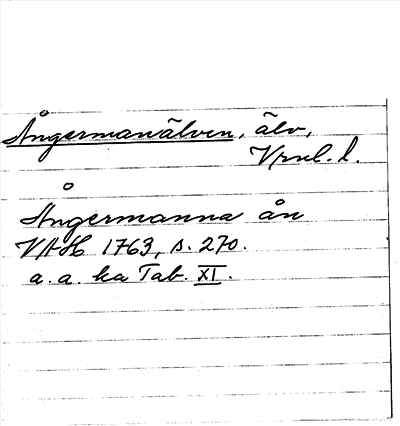 Ångermanälven, älv,
Vrnl. l.
Ångermanna ån
VAH 1763, s. 270.
a. a. ka Tab. XI.